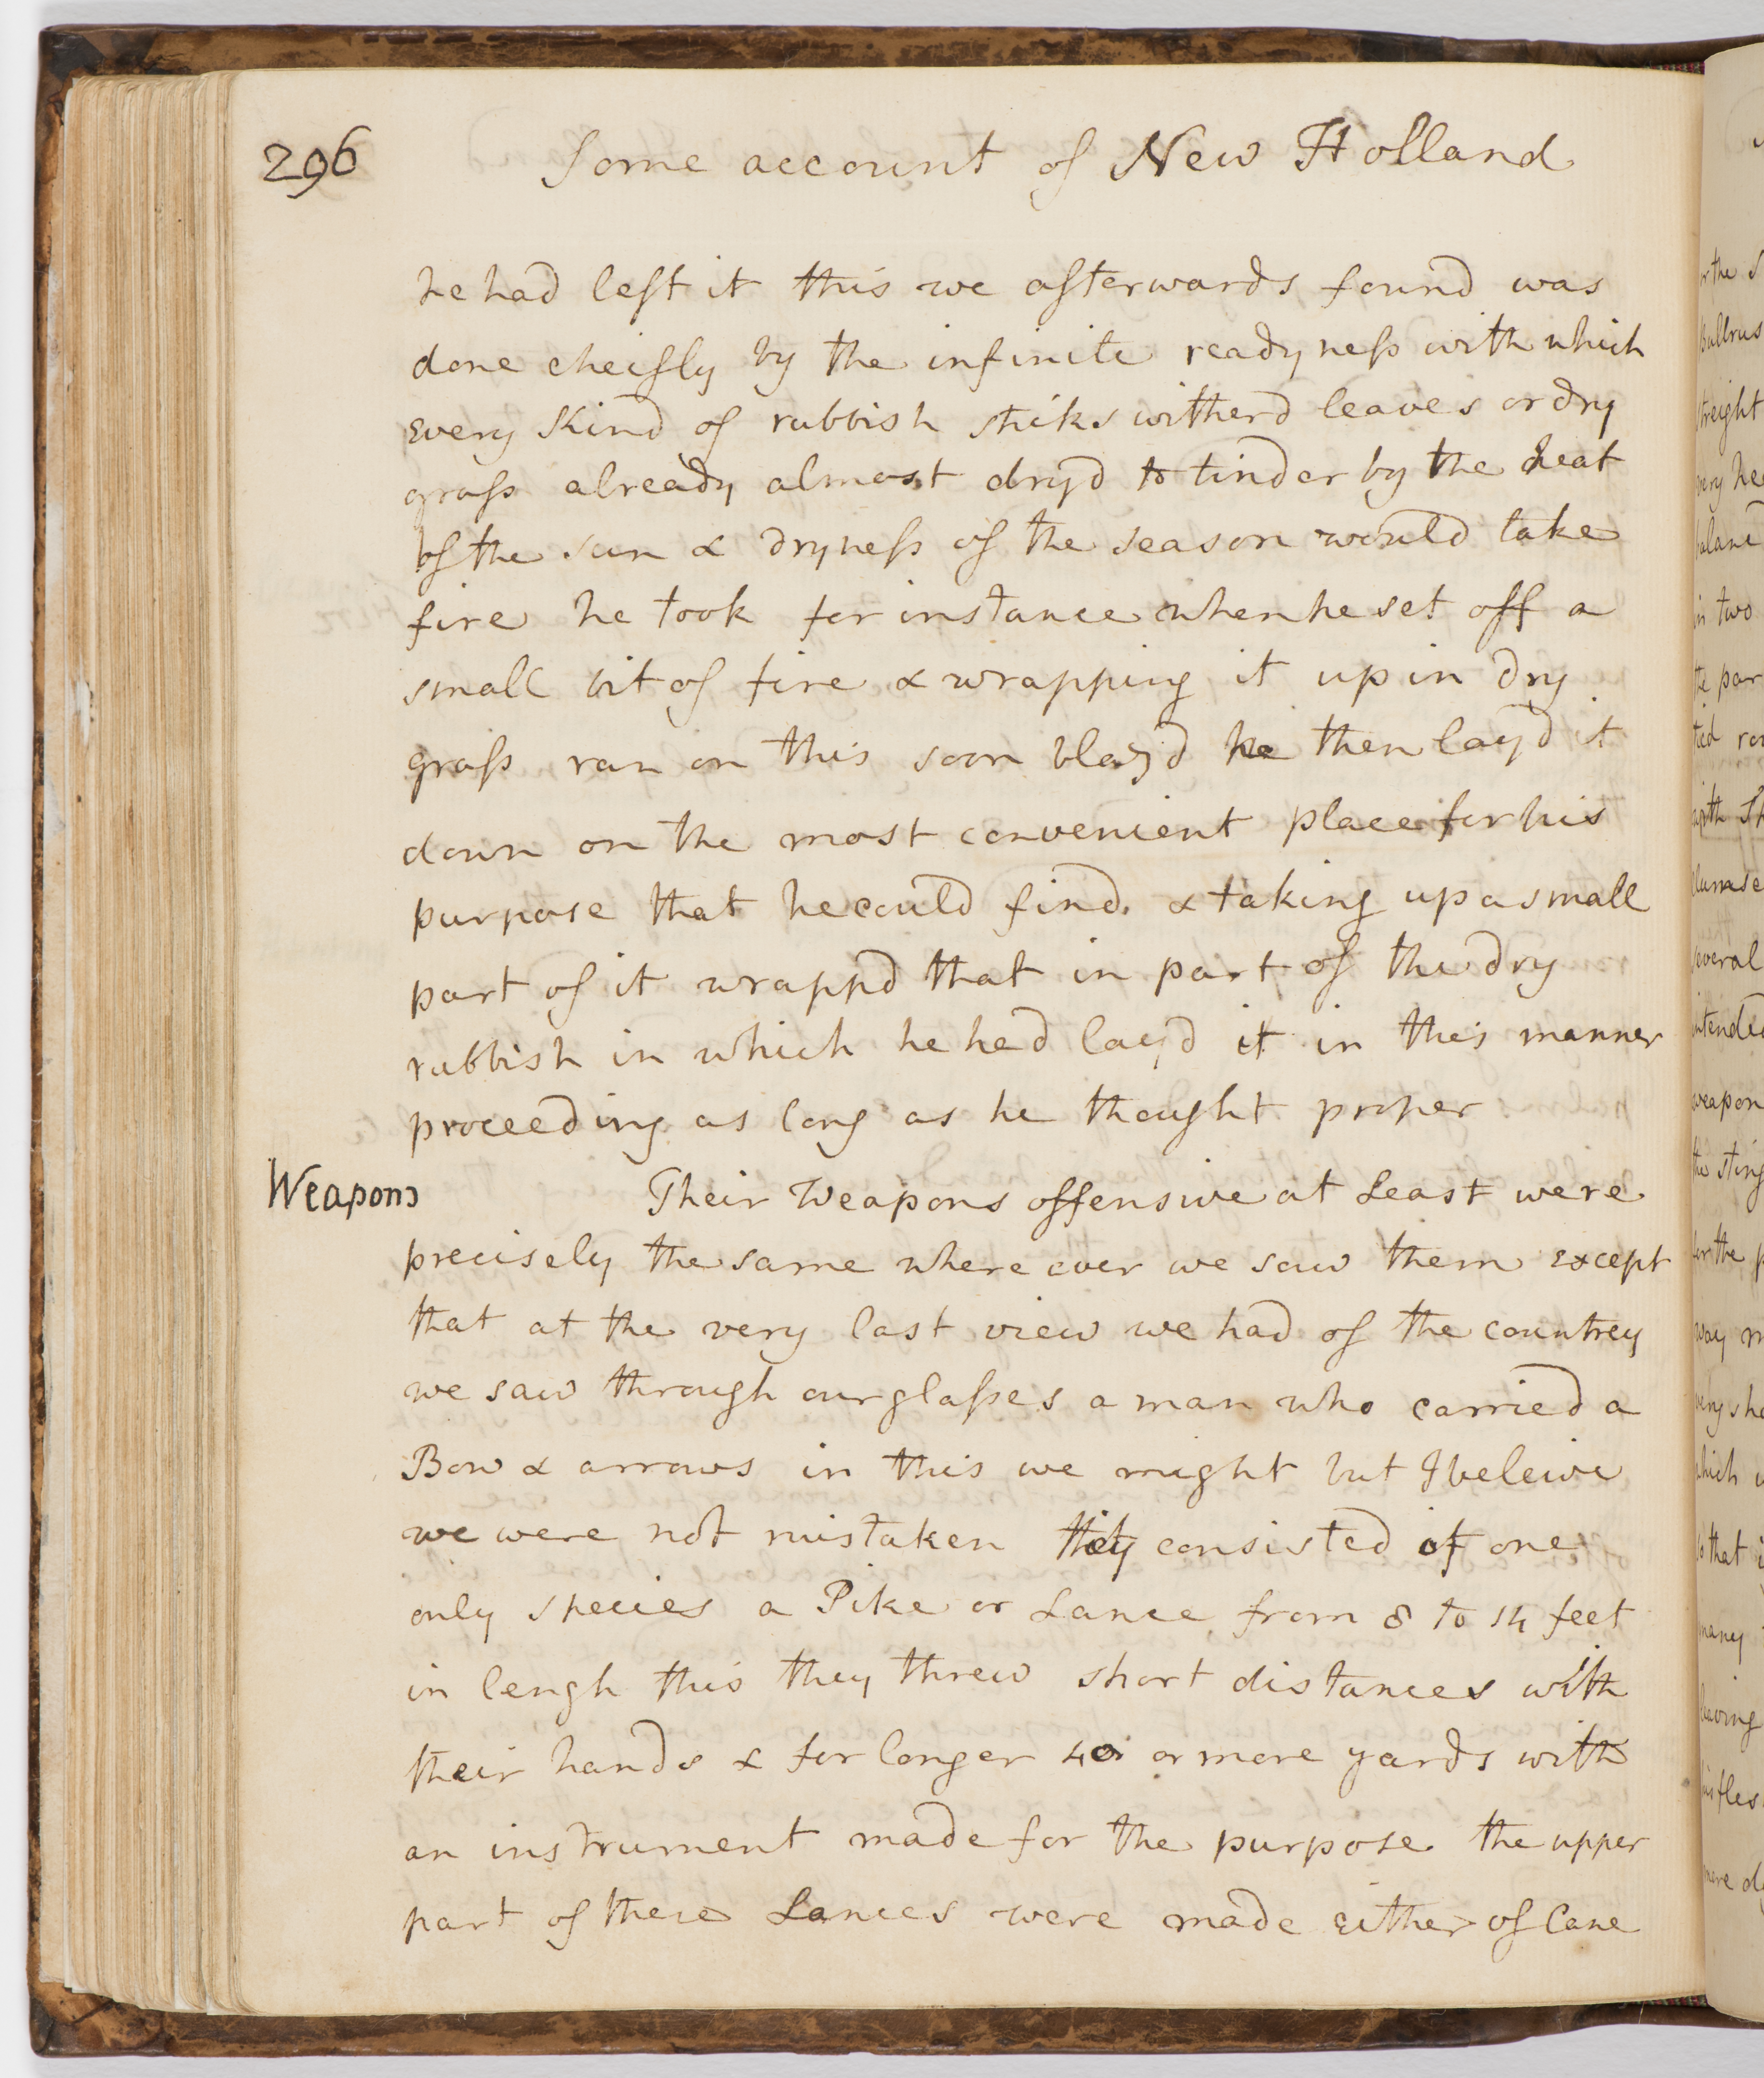 296 Some account of New Holland
he had left it this we afterwards found was
done cheifly by the infinite readyness with which
every Kind of rubbish sticks witherd leaves or dry
grass already almost dryd to tinder by the heat
of the sun & dryness of the season would take
fire he took for instance when he set off a
small bit of fire & wrapping it up in dry
grass ran on this soon blazd he then layd it
down on the most convenient place for his
purpose that he could find & taking up a small
part of it wrappd that in part of the dry
rubbish in which he had layd it in this manner
proceeding as long as he thought proper
Weapons Their Weapons offensive at Least were
precisely the same where ever we saw them except
that at the very last view we had of the countrey
we saw through our glasses a man who carried a
Bow & arrows in this we might but I beleive
we were not mistaken they consisted of one
only species a Pike or Lance from 8 to 14 feet
in lengh this they threw short distances with
their hands & for longer 40 or more yards with
an instrument made for the purpose the upper
part of these Lances were made either of Cane
or the
Bullrus
streight
very he
in two
the par
tied ro
with
several
intended
weapon
the sting
for the p
way m
very sh
which
so that i
many
leaving
his fles
more d